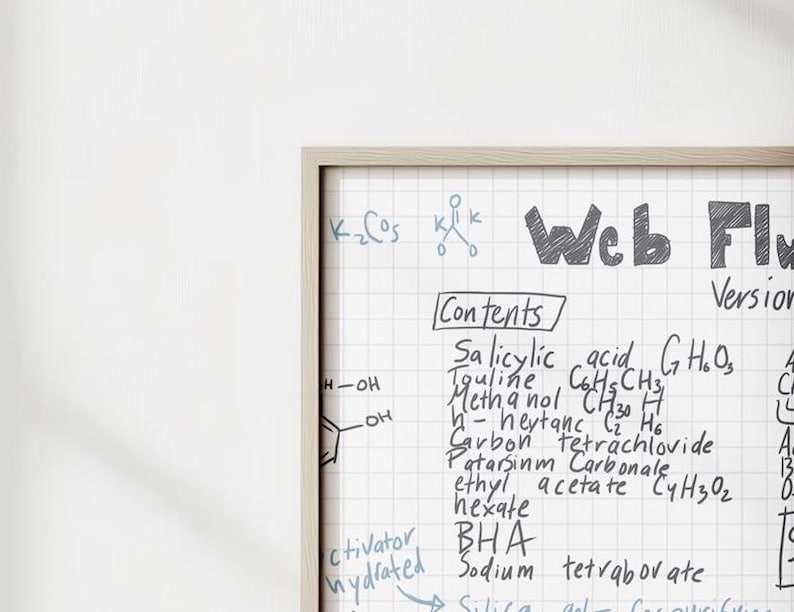 K₂CO₅
O
K K
O O
Web Flu
Version
Contents
Salicylic acid G H₆O₃
Touline C6H5CH3
Methanol CH30 H
n - heytanc C2 H6
Carbon tetrachlovide
Patarsinm Carbonale
ethyl acetate C4H3O2
hexate
BHA
Sodium tetraborate
H-OH
OH
ctivator
hydrated
Silica gel- for purifying